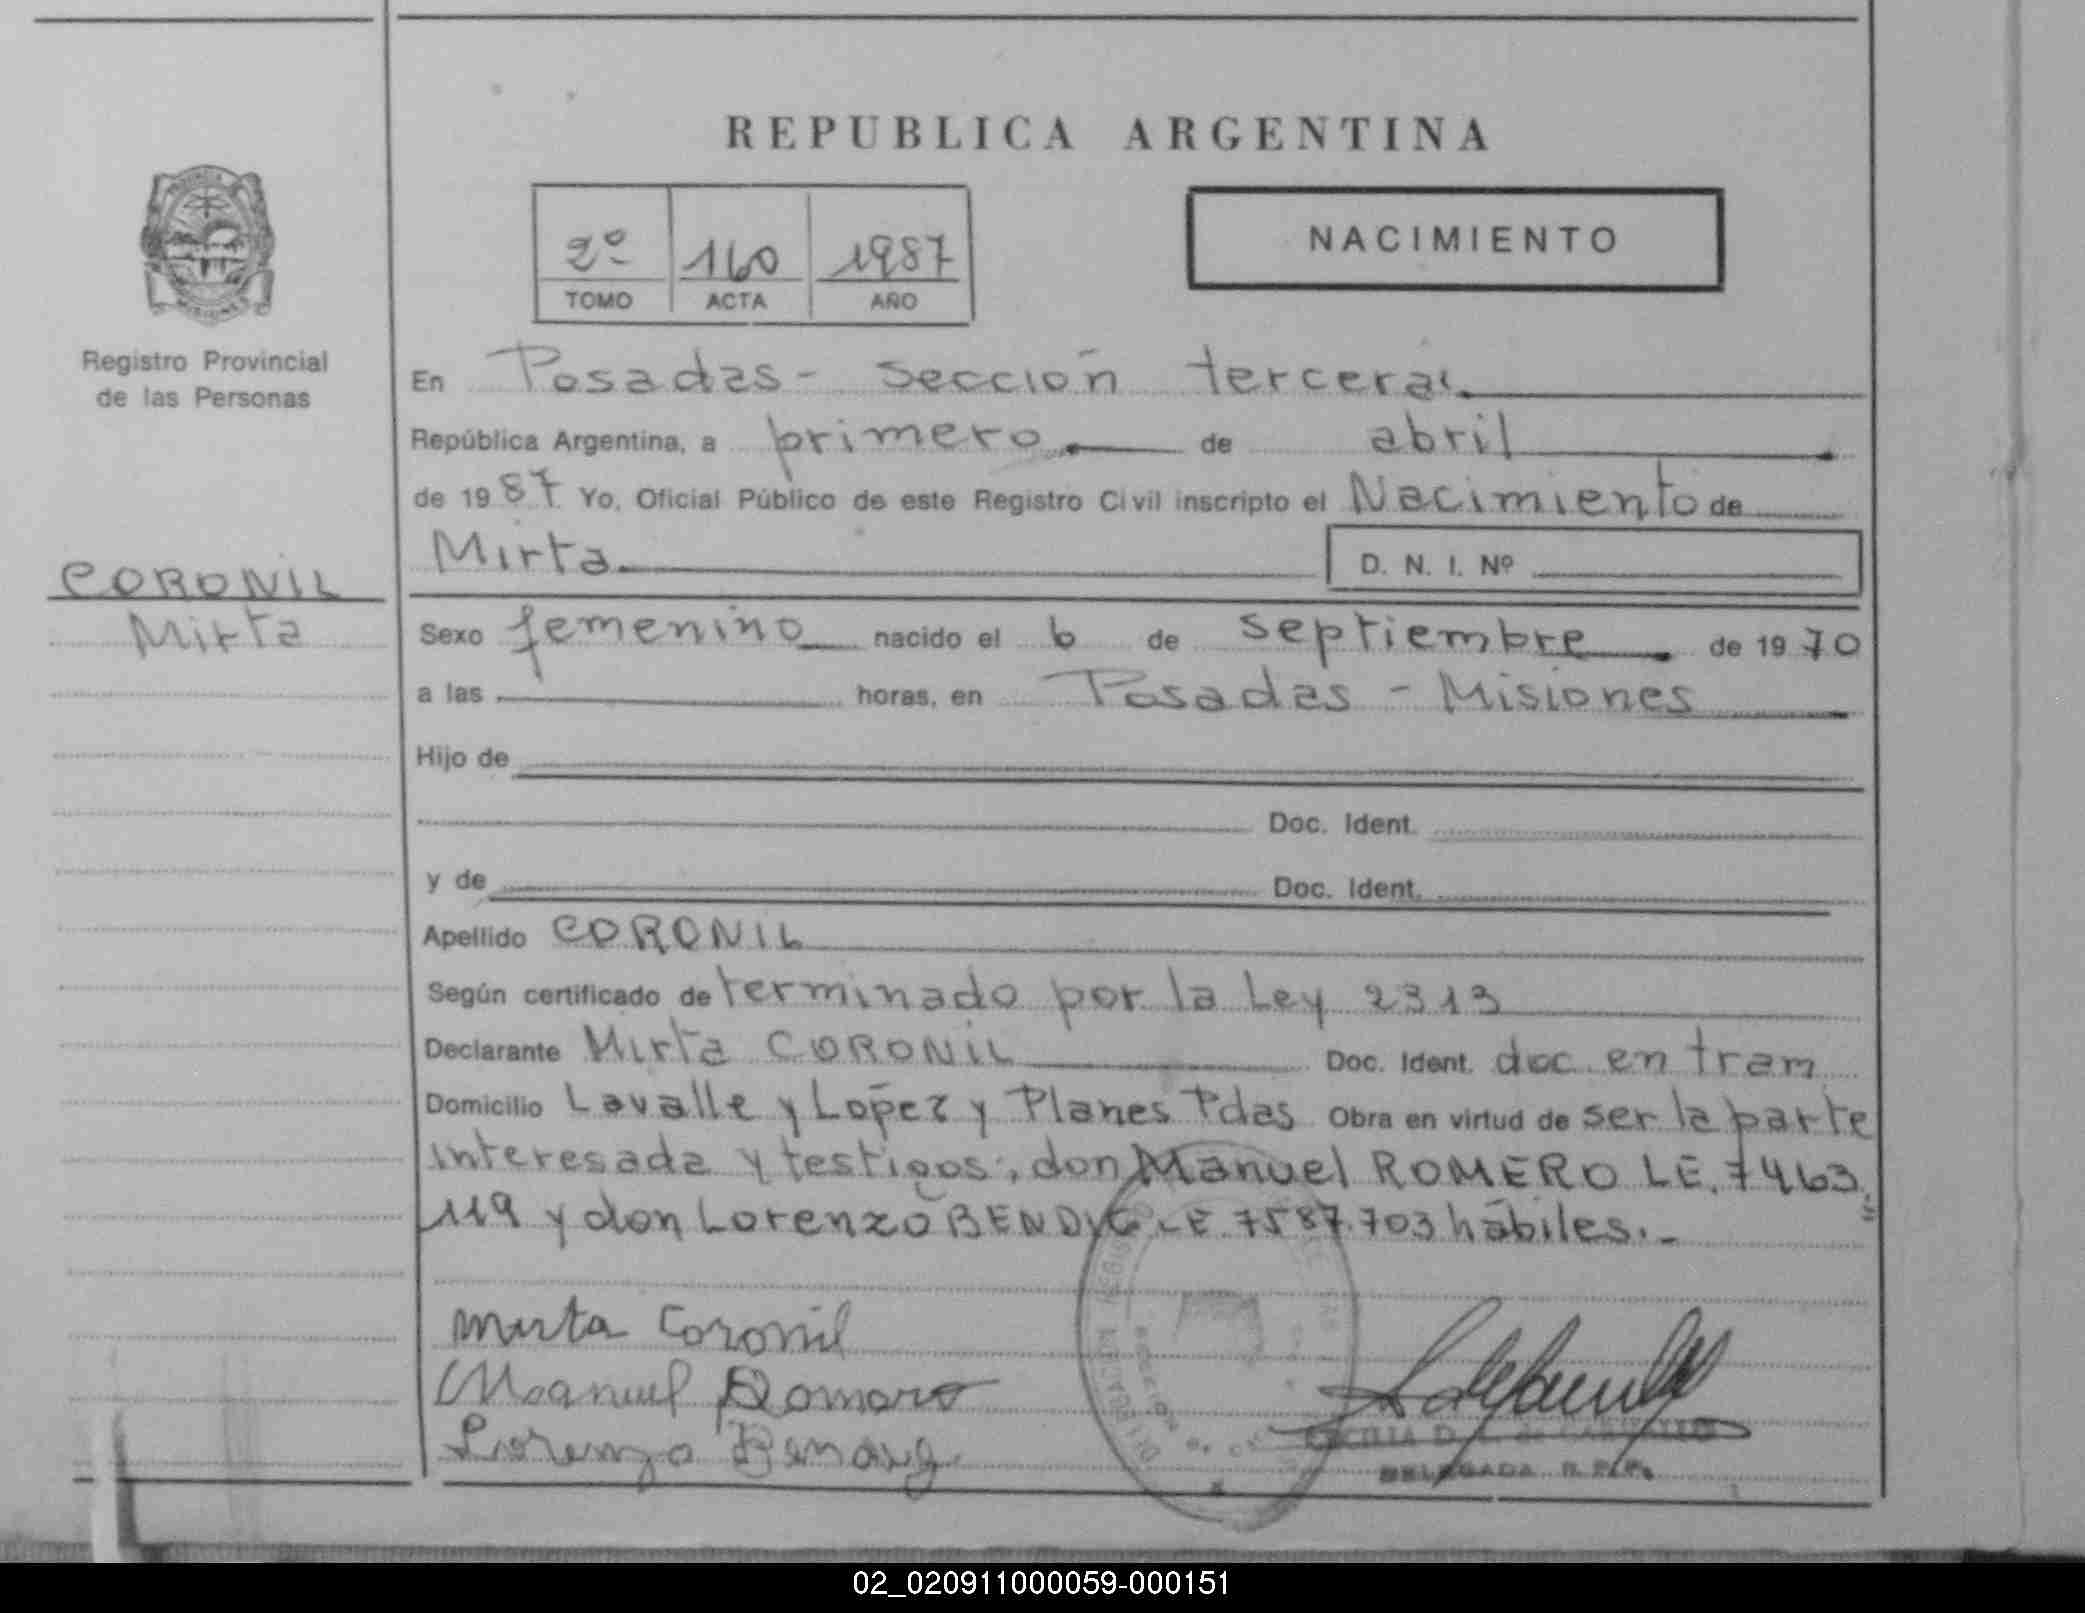 REPUBLICA ARGENTINA
2º 160 1987
TOMO ACTA AÑO
NACIMIENTO
Registro Provincial
de las Personas
CORONIL
Mirta
En Posadas - sección tercera.
República Argentina, a primero de abril
de 1987. Yo, Oficial Público de este Registro Civil inscripto el Nacimiento de
Mirta. D. N. I. Nº
Sexo femenino nacido el 6 de septiembre de 1970
a las horas, en Posadas - Misiones
Hijo de
Doc. Ident.
y de Doc. Ident.
Apellido CORONIL
Según certificado de terminado por la Ley 2313
Declarante Mirta CORONIL Doc. Ident. doc en tram
Domicilio Lavalle y López y Planes Pdas Obra en virtud de ser la parte
interesada y testigos; don Manuel ROMERO LE. 7463.
119 y don Lorenzo BENDYG LE 7587.703 hábiles.-
Mirta Coronil
Manuel Romero
Lorenzo Bendyg
DELEGADA R. P. P.
02_020911000059-000151